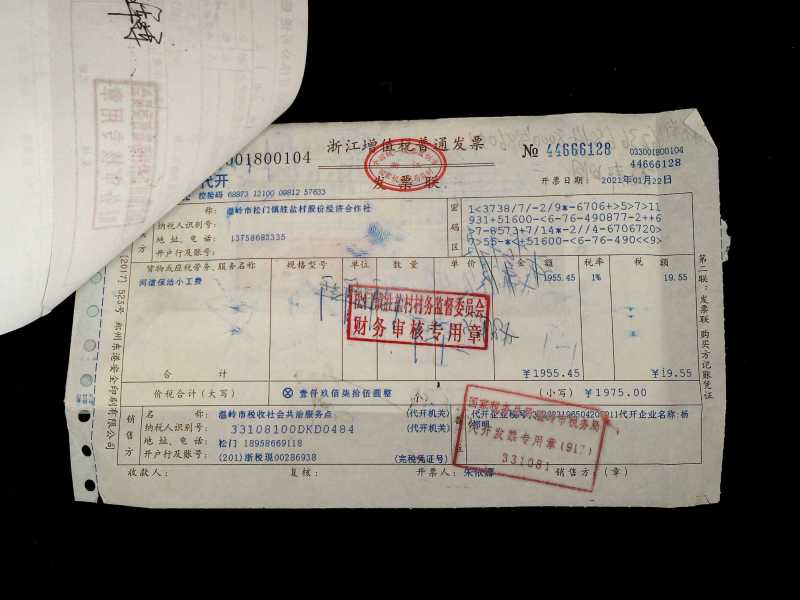 001800104
浙江增值税普通发票
发票联
№ 44666128
033001800104
44666128
代开
校验码 68873 12100 09812 57633
开票日期： 2021年01月22日
称： 温岭市松门镇胜盐村股份经济合作社
纳税人识别号：
地址、电话： 13758685335
开户行及账号：
方
密码区
1<3738/7/-2/9*-6706+>5>7>11
931+51600-<6-76-490877-2++6
>7-8573+7/14*-2//4-6706720>
>55-*<+51600-<6-76-490<<9>
货物或应税劳务、服务名称 规格型号 单位 数量 单价 金额 税率 税额
河道保洁小工费 1955.45 1% 19.55
松门镇胜盐村村务监督委员会
财务审核专用章
合计 ￥1955.45 ￥19.55
价税合计（大写） ⊗ 壹仟玖佰柒拾伍圆整 （小写） ￥1975.00
销售方
名称： 温岭市税收社会共治服务点 (代开机关)
纳税人识别号： 33108100DKD0484 (代开机关)
地址、电话： 松门 18958669118
开户行及账号： (201)浙税现00286938 (完税凭证号)
代开企业名称:杨
代开发票专用章(917)
331081
收款人： 复核： 开票人： 销售方：（章）
第二联：发票联 购买方记账凭证
[2017] 525号 杭州东港安全印刷有限公司